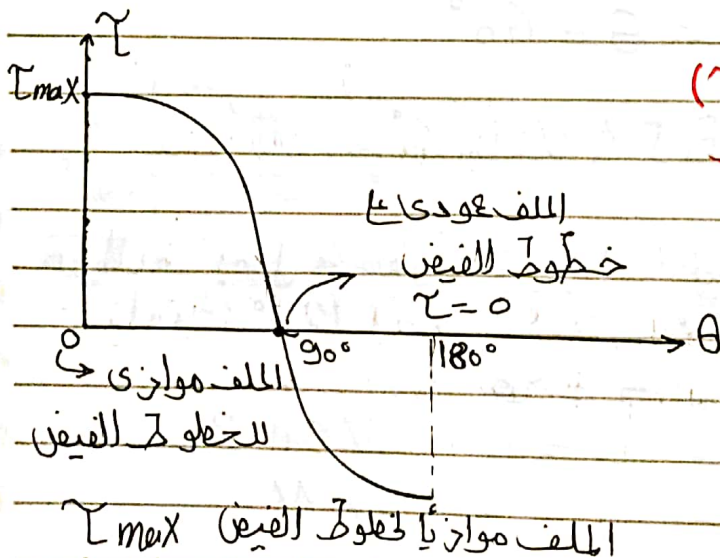 τ
τmax
الملف عودى ع
خطوط الفيض
τ = 0
0
90°
180°
θ
الملف موازى
للخطوط الفيض
τ max الملف موازياً لخطوط الفيض